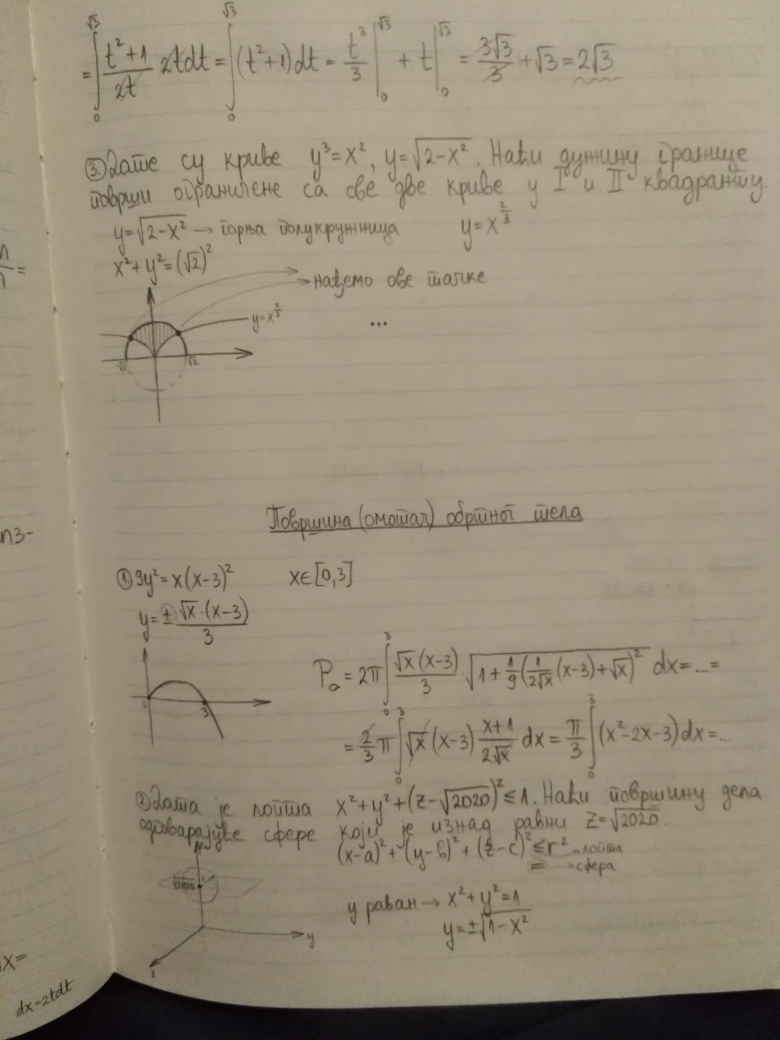 = ∫₀^√3 (t²+1)/(2t) 2tdt = ∫₀^√3 (t²+1)dt = t³/3 |₀^√3 + t|₀^√3 = 3√3/3 + √3 = 2√3
③ Дате су криве y³=x², y=√(2-x²). Наћи дужину границе
површи ограничене са ове две криве у I и II квадранту.
y=√(2-x²) → горња полукружница y=x^(2/3)
x²+y²=(√2)²
→ нађемо ове тачке
y=x^(2/3) ...
-√2 √2
Површина (омотач) обртног тела
① 9y²=x(x-3)² x∈[0,3]
y=±√x·(x-3)/3
0 3
Pₒ = 2π ∫₀³ √x(x-3)/3 · √(1+1/9(1/(2√x)(x-3)+√x)²) dx=...=
= 2/3 π ∫₀³ √x(x-3) (x+1)/(2√x) dx = π/3 ∫₀³ (x²-2x-3)dx=...
② Дата је лопта x²+y²+(z-√2020)²≤1. Наћи површину дела
одговарајуће сфере који је изнад равни z=√2020.
(x-a)²+(y-b)²+(z-c)²≤r² → лопта
= → сфера
√2020
у раван → x²+y²=1
y=±√(1-x²)
y
n3-
dx=2tdt